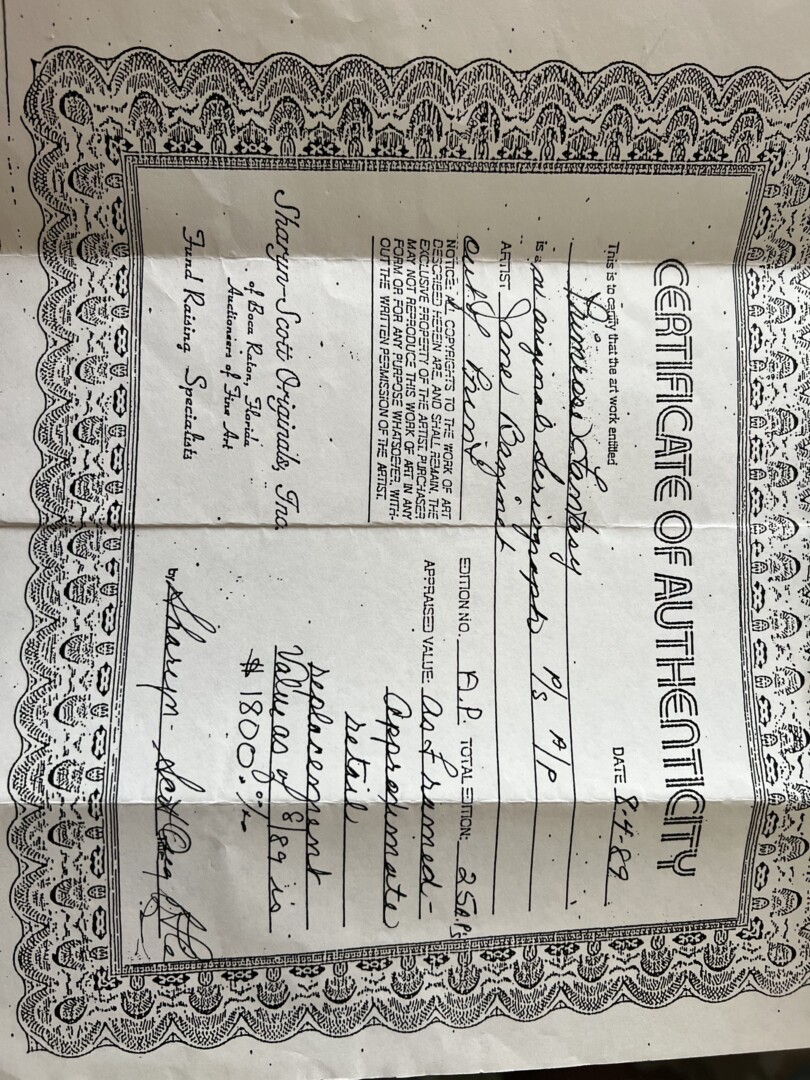 CERTIFICATE OF AUTHENTICITY
DATE 8-4-89
This is to certify that the art work entitled
Primrose Fantasy
is an original Serigraph P/S A/P
ARTIST Jane Bazinet
out of Print
NOTICE: ALL COPYRIGHTS TO THE WORK OF ART
DESCRIBED HEREIN ARE, AND SHALL REMAIN, THE
EXCLUSIVE PROPERTY OF THE ARTIST. PURCHASER
MAY NOT REPRODUCE THIS WORK OF ART IN ANY
FORM OR FOR ANY PURPOSE WHATSOEVER, WITH-
OUT THE WRITTEN PERMISSION OF THE ARTIST.
EDITION NO. A.P. TOTAL EDITION: 25 A.P.s
APPRAISED VALUE: As Framed-
approximate
retail
replacement
Value as of 8/89 is
$1800.
Sharyn-Scott Originals, Inc.
of Boca Raton, Florida
Auctioneers of Fine Art
Fund Raising Specialists
by Sharyn-Scott Orig